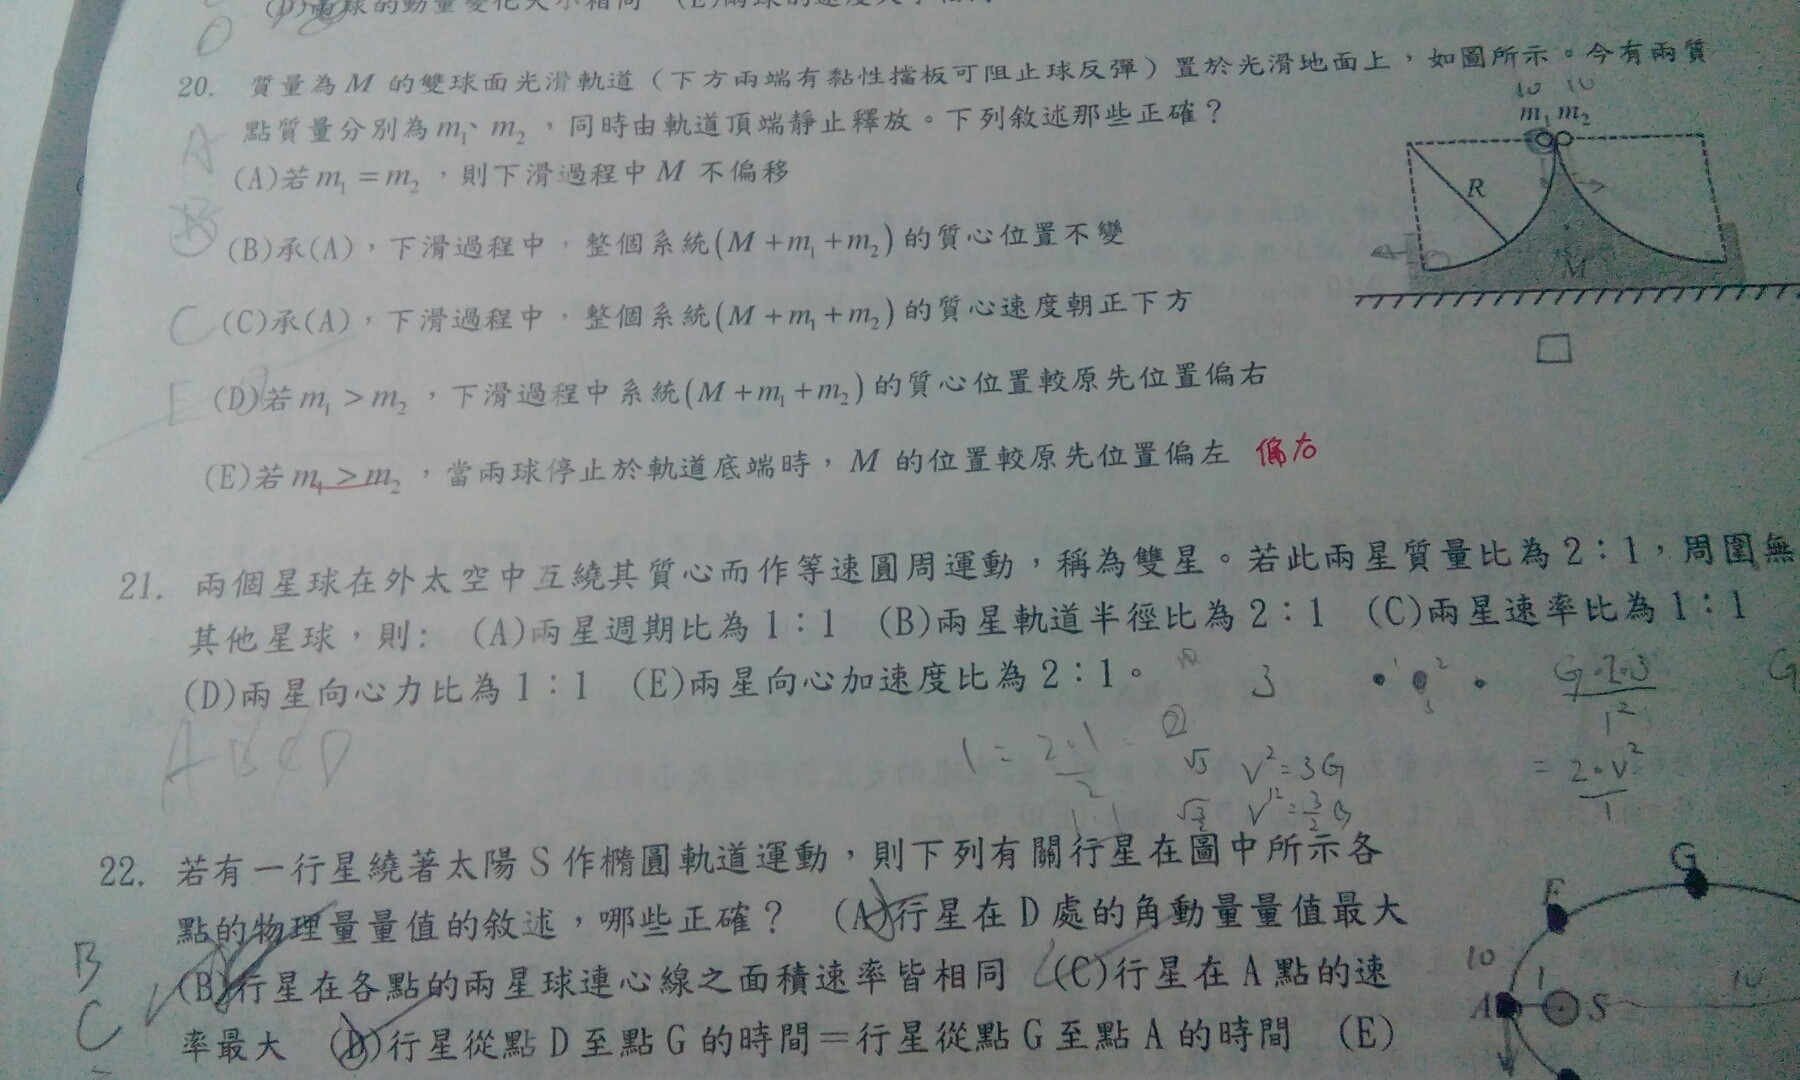 20. 質量為 M 的雙球面光滑軌道(下方兩端有黏性擋板可阻止球反彈)置於光滑地面上，如圖所示。今有兩質
點質量分別為 m₁、m₂，同時由軌道頂端靜止釋放。下列敘述那些正確？
(A)若 m₁ = m₂，則下滑過程中 M 不偏移
(B)承(A)，下滑過程中，整個系統(M + m₁ + m₂)的質心位置不變
(C)承(A)，下滑過程中，整個系統(M + m₁ + m₂)的質心速度朝正下方
(D)若 m₁ > m₂，下滑過程中系統(M + m₁ + m₂)的質心位置較原先位置偏右
(E)若 m₁ > m₂，當兩球停止於軌道底端時，M 的位置較原先位置偏左 偏右
10 10
m₁ m₂
R
M
A
C
E
21. 兩個星球在外太空中互繞其質心而作等速圓周運動，稱為雙星。若此兩星質量比為 2：1，周圍無
其他星球，則： (A)兩星週期比為 1：1 (B)兩星軌道半徑比為 2：1 (C)兩星速率比為 1：1
(D)兩星向心力比為 1：1 (E)兩星向心加速度比為 2：1。
3
G·2·3
1²
= 2·V²
1
√3 V² = 3G
A B C D
22. 若有一行星繞著太陽 S 作橢圓軌道運動，則下列有關行星在圖中所示各
點的物理量量值的敘述，哪些正確？ (A)行星在 D 處的角動量量值最大
(B)行星在各點的兩星球連心線之面積速率皆相同 (C)行星在 A 點的速
率最大 (D)行星從點 D 至點 G 的時間＝行星從點 G 至點 A 的時間 (E)
B
C
G
F
10
A
1
S
10